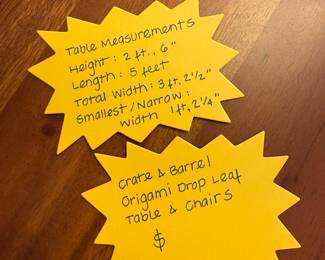 Table Measurements
Height: 2 ft., 6"
Length: 5 feet
Total Width: 3 ft, 2½"
Smallest/Narrow:
Width 1 ft, 2¼"
Crate & Barrel
Origami Drop Leaf
Table & Chairs
$